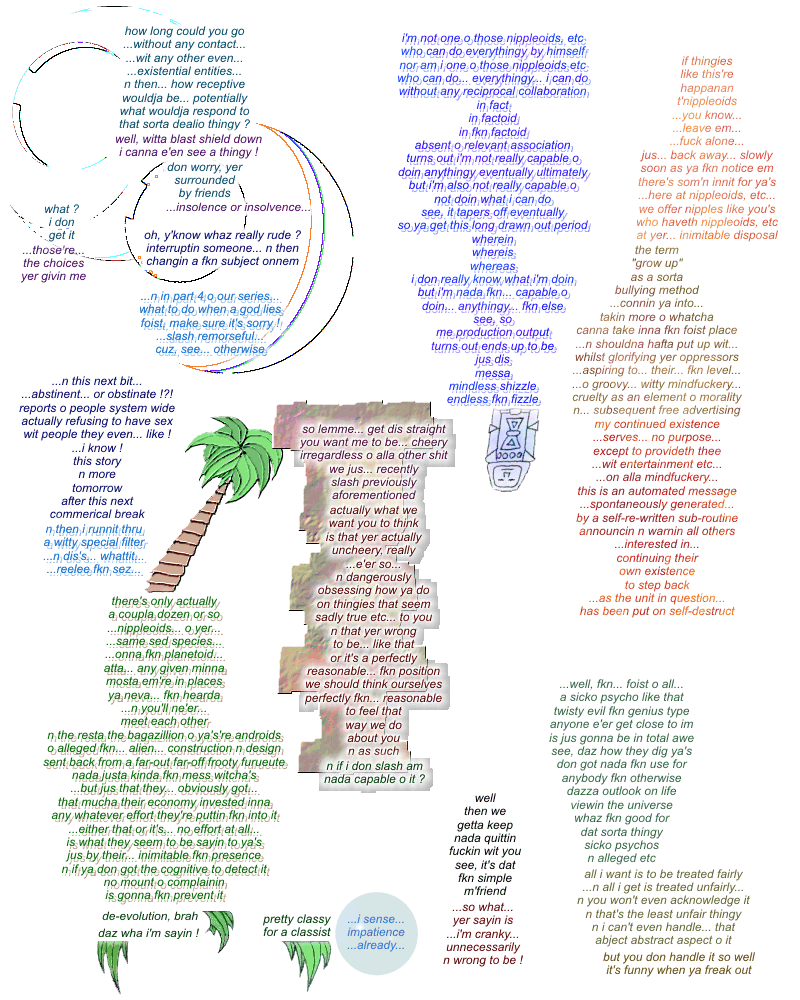 how long could you go
...without any contact...
...wit any other even...
...existential entities...
n then... how receptive
wouldja be... potentially
what wouldja respond to
that sorta dealio thingy ?
well, witta blast shield down
i canna e'en see a thingy !
don worry, yer
surrounded
by friends
...insolence or insolvence...
what ?
i don
get it
...those're...
the choices
yer givin me
oh, y'know whaz really rude ?
interruptin someone... n then
changin a fkn subject onnem
...n in part 4 o our series...
what to do when a god lies
foist, make sure it's sorry !
...slash remorseful...
cuz, see... otherwise
...n this next bit...
...abstinent... or obstinate !?!
reports o people system wide
actually refusing to have sex
wit people they even... like !
...i know !
this story
n more
tomorrow
after this next
commerical break
n then i runnit thru
a witty special filter
...n dis's... whattit...
...reelee fkn sez...
there's only actually
a coupla dozen or so
...nippleoids... o yer...
...same sed species...
...onna fkn planetoid...
atta... any given minna
mosta em're in places
ya neva... fkn hearda
...n you'll ne'er...
meet each other
n the resta the bagazillion o ya's're androids
o alleged fkn... alien... construction n design
sent back from a far-out far-off frooty furueute
nada justa kinda fkn mess witcha's
...but jus that they... obviously got...
that mucha their economy invested inna
any whatever effort they're puttin fkn into it
...either that or it's... no effort at all...
is what they seem to be sayin to ya's
jus by their... inimitable fkn presence
n if ya don got the cognitive to detect it
no mount o complainin
is gonna fkn prevent it
de-evolution, brah
daz wha i'm sayin !
pretty classy
for a classist
...i sense...
impatience
...already...
so lemme... get dis straight
you want me to be... cheery
irregardless o alla other shit
we jus... recently
slash previously
aforementioned
actually what we
want you to think
is that yer actually
uncheery, really
...e'er so...
n dangerously
obsessing how ya do
on thingies that seem
sadly true etc... to you
n that yer wrong
to be... like that
or it's a perfectly
reasonable... fkn position
we should think ourselves
perfectly fkn... reasonable
to feel that
way we do
about you
n as such
n if i don slash am
nada capable o it ?
i'm not one o those nippleoids, etc
who can do everythingy by himself
nor am i one o those nippleoids etc
who can do... everythingy... i can do
without any reciprocal collaboration
in fact
in factoid
in fkn factoid
absent o relevant association
turns out i'm not really capable o
doin anythingy eventually ultimately
but i'm also not really capable o
not doin what i can do
see, it tapers off eventually
so ya get this long drawn out period
wherein
whereis
whereas
i don really know what i'm doin
but i'm nada fkn... capable o
doin... anythingy... fkn else
see, so
me production output
turns out ends up to be
jus dis
messa
mindless shizzle
endless fkn fizzle
if thingies
like this're
happanan
t'nippleoids
...you know...
...leave em...
...fuck alone...
jus... back away... slowly
soon as ya fkn notice em
there's som'n innit for ya's
...here at nippleoids, etc...
we offer nipples like you's
who haveth nippleoids, etc
at yer... inimitable disposal
the term
"grow up"
as a sorta
bullying method
...connin ya into...
takin more o whatcha
canna take inna fkn foist place
...n shouldna hafta put up wit...
whilst glorifying yer oppressors
...aspiring to... their... fkn level...
...o groovy... witty mindfuckery...
cruelty as an element o morality
n... subsequent free advertising
my continued existence
...serves... no purpose...
except to provideth thee
...wit entertainment etc...
...on alla mindfuckery...
this is an automated message
...spontaneously generated...
by a self-re-written sub-routine
announcin n warnin all others
...interested in...
continuing their
own existence
to step back
...as the unit in question...
has been put on self-destruct
...well, fkn... foist o all...
a sicko psycho like that
twisty evil fkn genius type
anyone e'er get close to im
is jus gonna be in total awe
see, daz how they dig ya's
don got nada fkn use for
anybody fkn otherwise
dazza outlook on life
viewin the universe
whaz fkn good for
dat sorta thingy
sicko psychos
n alleged etc
well
then we
getta keep
nada quittin
fuckin wit you
see, it's dat
fkn simple
m'friend
...so what...
yer sayin is
...i'm cranky...
unnecessarily
n wrong to be !
all i want is to be treated fairly
...n all i get is treated unfairly...
n you won't even acknowledge it
n that's the least unfair thingy
n i can't even handle... that
abject abstract aspect o it
but you don handle it so well
it's funny when ya freak out